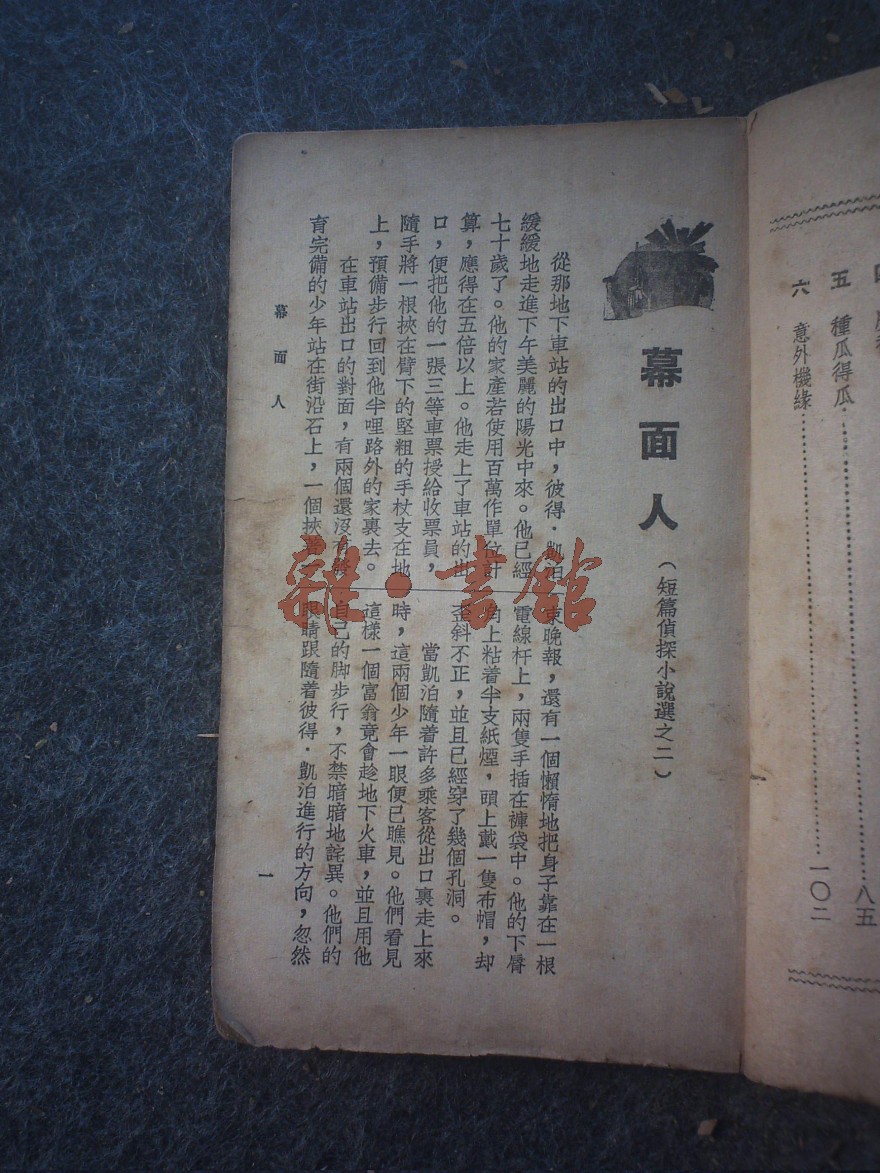 四
五　種瓜得瓜……八五
六　意外機緣……一〇二
幕面人
（短篇偵探小說選之二）
從那地下車站的出口中，彼得．凱泊
緩緩地走進下午美麗的陽光中來。他已經
七十歲了。他的家產若使用百萬作單位計
算，應得在五倍以上。他走上了車站的出
口，便把他的一張三等車票授給收票員，
隨手將一根挾在臂下的堅粗的手杖支在地
上，預備步行回到他半哩路外的家裏去。
在車站出口的對面，有兩個還沒有發
育完備的少年站在街沿石上，一個挾着
束晚報，還有一個懶惰地把身子靠在一根
電線杆上，兩隻手插在褲袋中。他的下唇
角上粘着半支紙煙，頭上戴一隻布帽，却
歪斜不正，並且已經穿了幾個孔洞。
當凱泊隨着許多乘客從出口裏走上來
時，這兩個少年一眼便已瞧見。他們看見
這樣一個富翁竟會趁地下火車，並且用他
自己的脚步行，不禁暗暗地詫異。他們的
眼睛跟隨着彼得．凱泊進行的方向，忽然
幕面人
一
雜·書館